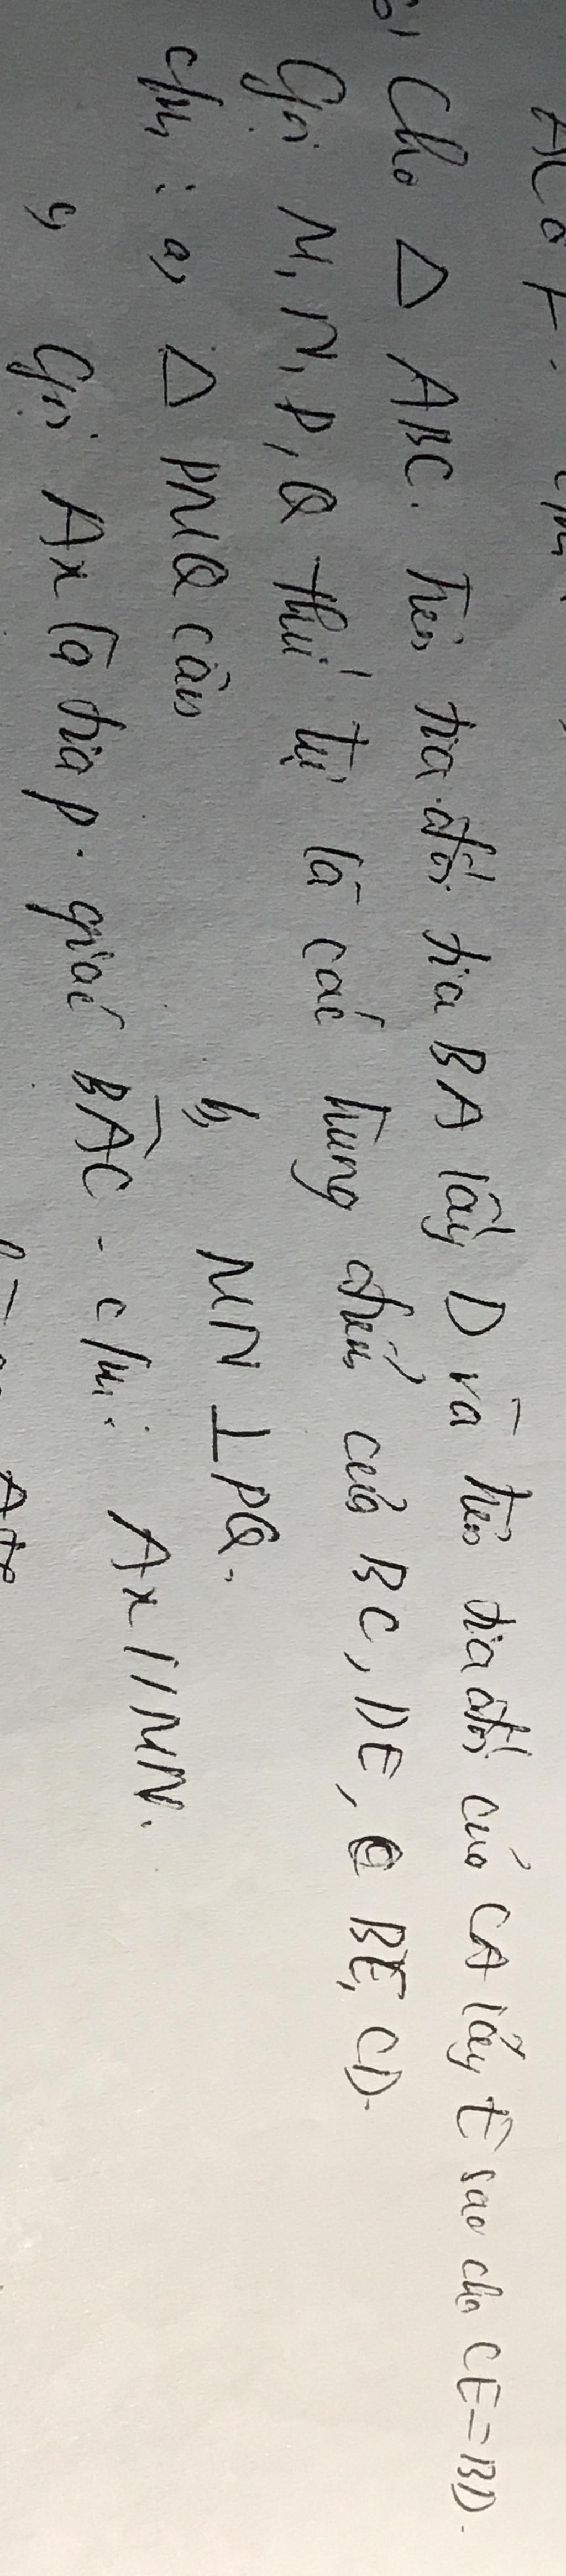 Cho △ ABC. Trên tia đối tia BA lấy D và trên tia đối của CA lấy E sao cho CE=BD.
Gọi M, N, P, Q thứ tự là các trung điểm của BC, DE, BE, CD.
c/m: a, △ PMQ cân b, MN ⊥ PQ.
c, Gọi Ax là tia p. giác BAC. c/m: Ax // MN.